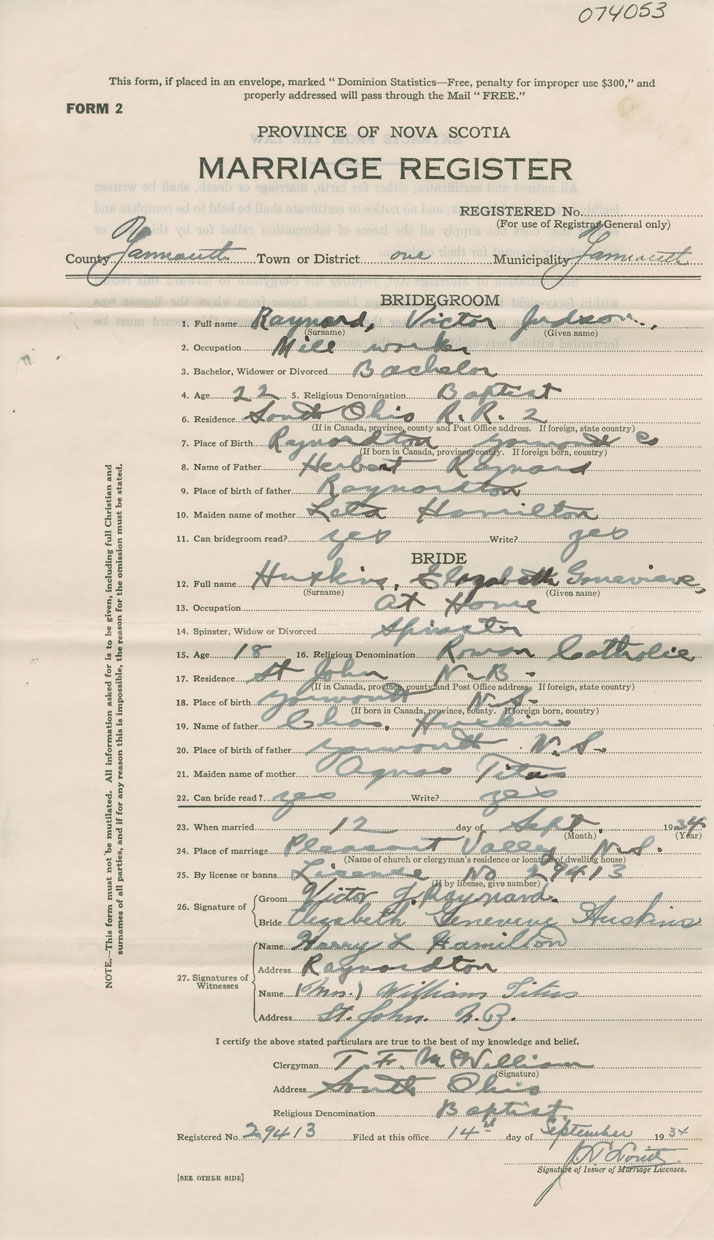 074053
This form, if placed in an envelope, marked " Dominion Statistics—Free, penalty for improper use $300," and
properly addressed will pass through the Mail " FREE."
FORM 2
PROVINCE OF NOVA SCOTIA
MARRIAGE REGISTER
REGISTERED No.
(For use of Registrar General only)
County Yarmouth Town or District one Municipality Yarmouth
BRIDEGROOM
1. Full name Raynard, Victor Judson.
(Surname) (Given name)
2. Occupation Mill worker
3. Bachelor, Widower or Divorced Bachelor
4. Age 22 5. Religious Denomination Baptist
6. Residence South Ohio R. R. 2
(If in Canada, province, county and Post Office address. If foreign, state country)
7. Place of Birth Raynardton Yarmouth Co
(If born in Canada, province, county. If foreign born, country)
8. Name of Father Herbert Raynard
9. Place of birth of father Raynardton
10. Maiden name of mother Leta Hamilton
11. Can bridegroom read? yes Write? yes
BRIDE
12. Full name Huskins, Elizabeth Genevieve,
(Surname) (Given name)
13. Occupation At Home
14. Spinster, Widow or Divorced Spinster
15. Age 18 16. Religious Denomination Roman Catholic
17. Residence St John N. B.
(If in Canada, province, county and Post Office address. If foreign, state country)
18. Place of birth Yarmouth N.S.
(If born in Canada, province, county. If foreign born, country)
19. Name of father Chas. Huskins
20. Place of birth of father Yarmouth N.S.
21. Maiden name of mother Agnes Titus
22. Can bride read? yes Write? yes
23. When married 12 day of Sept. 1934
(Month) (Year)
24. Place of marriage Pleasant Valley N.S.
(Name of church or clergyman's residence or location of dwelling house)
25. By license or banns License No 29413
(If by license, give number)
26. Signature of Groom Victor J. Raynard.
Bride Elizabeth Genevieve Huskins
27. Signatures of Witnesses
Name Harry L Hamilton
Address Raynardton
Name (Mrs.) William Titus
Address St. John. N.B.
I certify the above stated particulars are true to the best of my knowledge and belief.
Clergyman T. F. McWilliam
(Signature)
Address South Ohio
Religious Denomination Baptist.
Registered No. 29413 Filed at this office 14th day of September 1934
Signature of Issuer of Marriage Licenses.
[SEE OTHER SIDE]
NOTE.—This form must not be mutilated. All information asked for is to be given, including full Christian and
surnames of all parties, and if for any reason this is impossible, the reason for the omission must be stated.